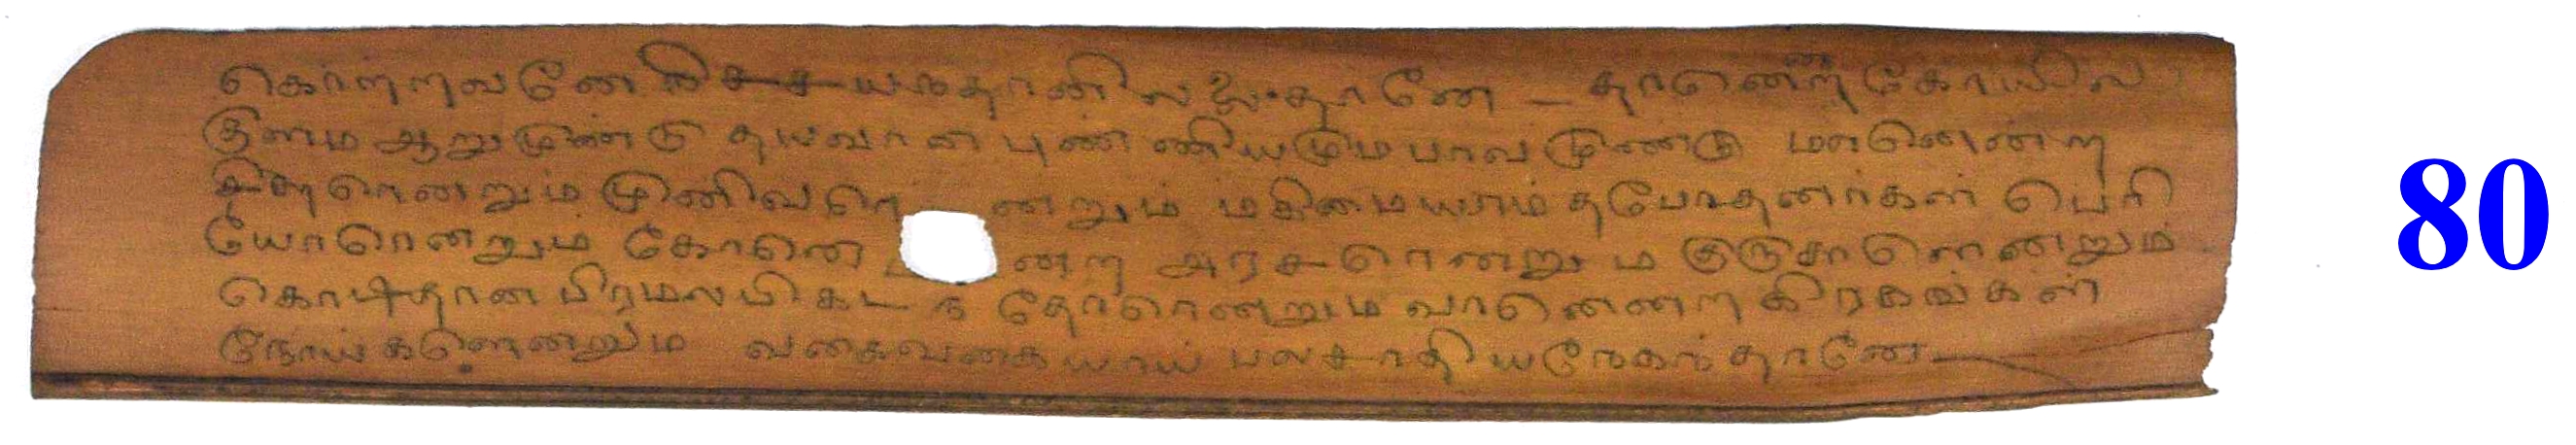 கொற்றவனே நிச்சயமதானிலலதானே — தானென்ற கோயில
குளம ஆறுமுண்டு தயவான புண்ணியமும பாவமுண்டு மானென்ற
சித்தரென்றும முனிவரென்றும் மகிமையாம் தபோதனர்கள் பெரி
யோரென்றும் கோனென்ற அரசரென்றும குருசாளென்றும்
கொடிதான பிரமலபிகட ந தோரென்றும வானென்ற கிரகங்கள்
நோய்களென்றும வகைவகையாய் பலசாதியநேகந்தானே —
80